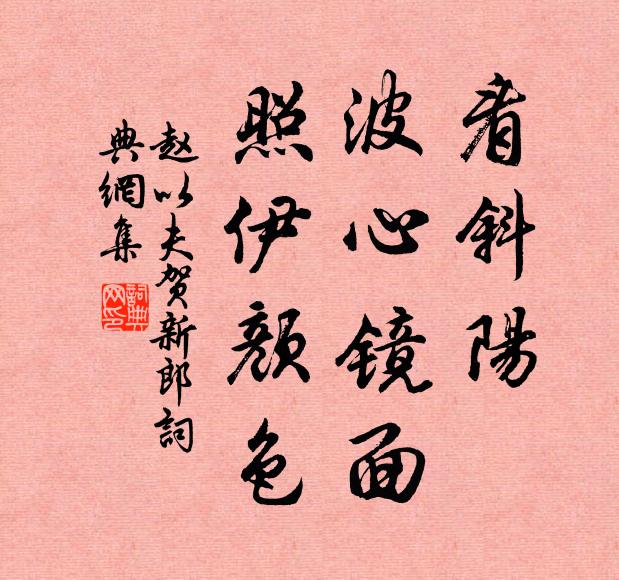 看斜陽
波心镜面
照伊顏色
赵以夫贺新郎詞
典網集
詞典网印